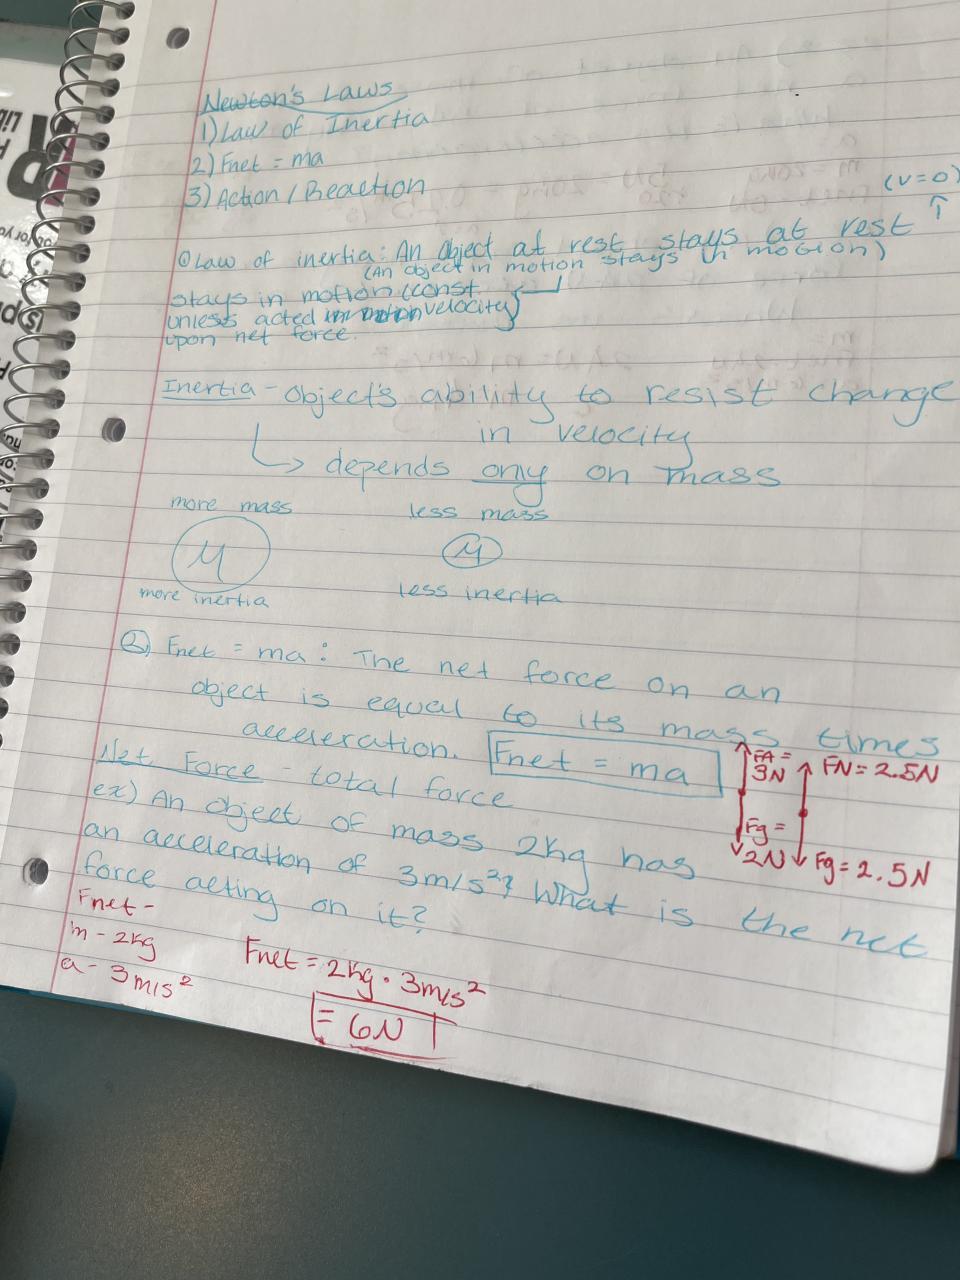 Newton's Laws
1) Law of Inertia
2) Fnet = ma
3) Action / Reaction
(v=0)
① Law of inertia: An object at rest stays at rest
(An object in motion stays in motion)
stays in motion (const.
unless acted velocity)
upon net force.
Inertia - Object's ability to resist change
in velocity
↳ depends only on mass
more mass less mass
M M
more inertia less inertia
② Fnet = ma: The net force on an
object is equal to its mass times
acceleration. Fnet = ma
FA = 3N
Fg = 2N
FN = 2.5N
Fg = 2.5N
Net Force - total force
ex) An Object of mass 2kg has
an acceleration of 3m/s²? What is the net
force acting on it?
Fnet -
m - 2kg
a - 3m/s²
Fnet = 2kg · 3m/s²
= 6N